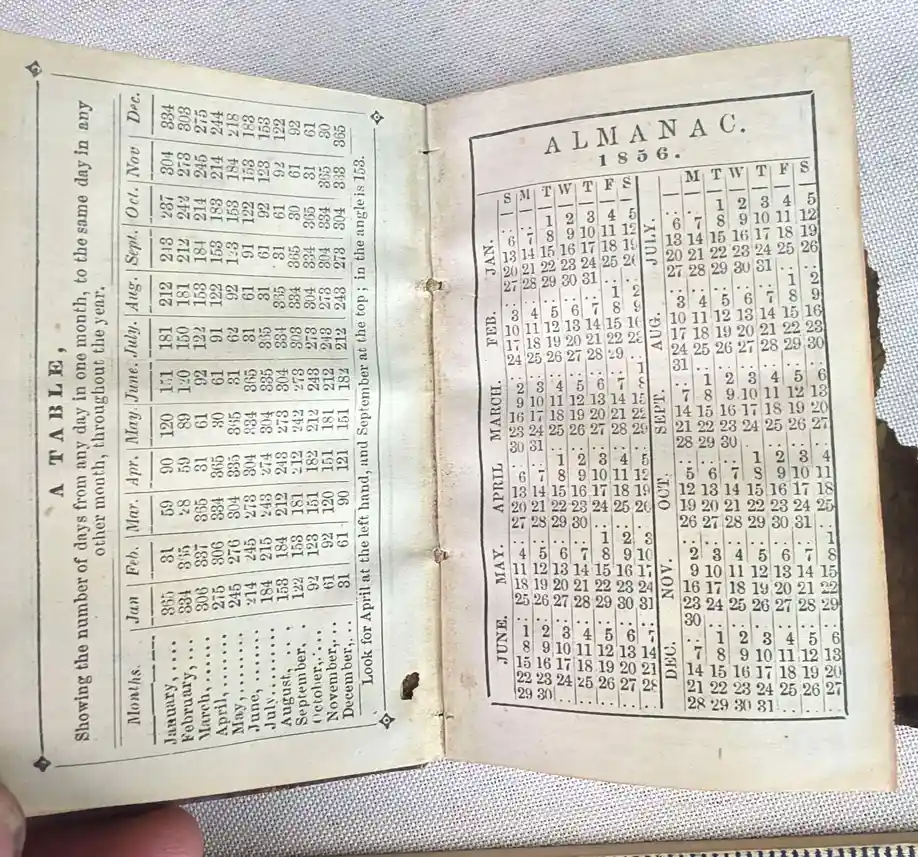 A TABLE,
Showing the number of days from any day in one month, to the same day in any
other month, throughout the year.
Months. Jan Feb. Mar. Apr. May. June. July. Aug. Sept. Oct. Nov Dec.
January, .... 365 31 59 90 120 151 181 212 243 237 304 334
February, .... 334 365 28 59 89 120 150 181 212 242 273 303
March, ...... 306 337 365 31 61 92 122 153 184 214 245 275
April, ....... 275 306 334 365 30 61 91 122 153 183 214 244
May, ........ 245 276 304 335 365 31 62 92 123 153 184 218
June, ....... 214 245 273 304 334 365 31 61 91 122 153 183
July, ........ 184 215 243 274 304 335 365 31 61 92 123 153
August, .... 153 184 212 243 273 304 334 365 31 61 92 122
September, . 122 153 181 212 242 273 303 334 365 30 61 92
October, .... 92 123 151 182 212 243 273 304 334 365 31 61
November, ... 61 92 120 151 181 212 243 273 304 334 365 30
December, ... 31 61 90 121 151 182 212 243 273 304 333 365
Look for April at the left hand, and September at the top; in the angle is 153.
ALMANAC.
1856.
S M T W T F S
JAN.
.. .. 1 2 3 4 5
6 7 8 9 10 11 12
13 14 15 16 17 18 19
20 21 22 23 24 25 26
27 28 29 30 31 .. ..
FEB.
.. .. .. .. .. 1 2
3 4 5 6 7 8 9
10 11 12 13 14 15 16
17 18 19 20 21 22 23
24 25 26 27 28 29 ..
MARCH.
.. .. .. .. .. .. 1
2 3 4 5 6 7 8
9 10 11 12 13 14 15
16 17 18 19 20 21 22
23 24 25 26 27 28 29
30 31 .. .. .. .. ..
APRIL
.. .. 1 2 3 4 5
6 7 8 9 10 11 12
13 14 15 16 17 18 19
20 21 22 23 24 25 26
27 28 29 30 .. .. ..
MAY.
.. .. .. .. 1 2 3
4 5 6 7 8 9 10
11 12 13 14 15 16 17
18 19 20 21 22 23 24
25 26 27 28 29 30 31
JUNE.
1 2 3 4 5 6 7
8 9 10 11 12 13 14
15 16 17 18 19 20 21
22 23 24 25 26 27 28
29 30 .. .. .. .. ..
M T W T F S
JULY.
.. .. 1 2 3 4 5
6 7 8 9 10 11 12
13 14 15 16 17 18 19
20 21 22 23 24 25 26
27 28 29 30 31 .. ..
AUG.
.. .. .. .. .. 1 2
3 4 5 6 7 8 9
10 11 12 13 14 15 16
17 18 19 20 21 22 23
24 25 26 27 28 29 30
31 .. .. .. .. .. ..
SEPT.
.. 1 2 3 4 5 6
7 8 9 10 11 12 13
14 15 16 17 18 19 20
21 22 23 24 25 26 27
28 29 30 .. .. .. ..
OCT.
.. .. .. 1 2 3 4
5 6 7 8 9 10 11
12 13 14 15 16 17 18
19 20 21 22 23 24 25
26 27 28 29 30 31 ..
NOV.
.. .. .. .. .. .. 1
2 3 4 5 6 7 8
9 10 11 12 13 14 15
16 17 18 19 20 21 22
23 24 25 26 27 28 29
30 .. .. .. .. .. ..
DEC.
.. 1 2 3 4 5 6
7 8 9 10 11 12 13
14 15 16 17 18 19 20
21 22 23 24 25 26 27
28 29 30 31 .. .. ..